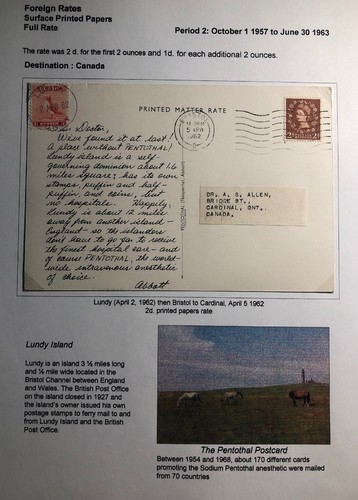 Foreign Rates
Surface Printed Papers
Full Rate
Period 2: October 1 1957 to June 30 1963
The rate was 2 d. for the first 2 ounces and 1d. for each additional 2 ounces.
Destination : Canada
PRINTED MATTER RATE
Dear Doctor,
We've found it at last!
A place without PENTOTHAL!
Lundy Island is a self-
governing dominion about 1.6
miles square; has its own
stamps, puffin and half-
puffin and coins, but
no hospitals. Happily,
Lundy is about 12 miles
away from another island -
England - so the islanders
don't have to go far to receive
the finest hospital care - and
of course PENTOTHAL, the world-
wide intravenous anesthetic
of choice.
Abbott
5 APR
1962
DR. A. S. ALLEN,
BRIDGE ST.,
CARDINAL, ONT.,
CANADA.
Lundy (April 2, 1962) then Bristol to Cardinal, April 5 1962
2d. printed papers rate
Lundy Island
Lundy is an island 3 ½ miles long
and ½ mile wide located in the
Bristol Channel between England
and Wales. The British Post Office
on the island closed in 1927 and
the island's owner issued his own
postage stamps to ferry mail to and
from Lundy Island and the British
Post Office.
The Pentothal Postcard
Between 1954 and 1968, about 170 different cards
promoting the Sodium Pentothal anesthetic were mailed
from 70 countries